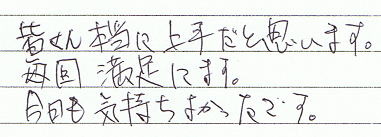 皆さん本当に上手だと思います。
毎回満足してます。
今日も気持ちよかったです。